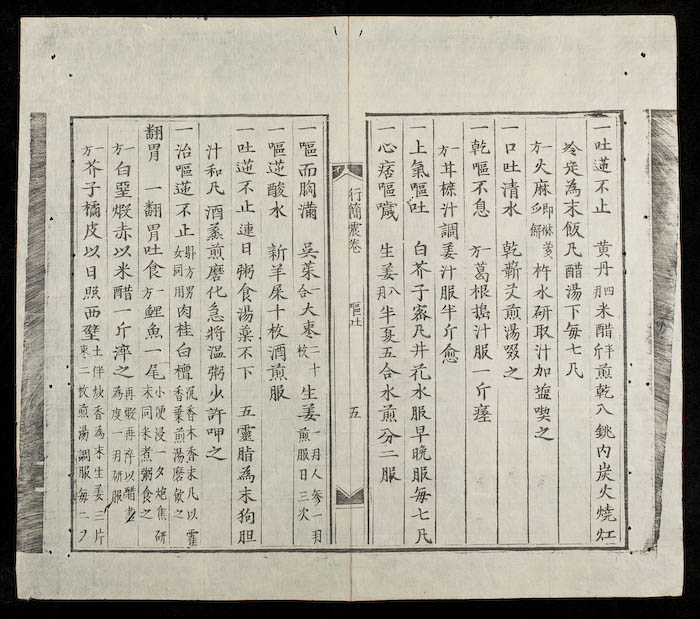 一吐逆不止　黄丹四两米醋半斤煎乾入銚内炭火燒紅
冷定為末飯凢醋湯下每七凢
一方火麻即麻蕡杵水研取汁加塩喫之
一口吐清水　乾蘄艾煎湯啜之
一乾嘔不息　一方葛根搗汁服一斤瘥
一方苷樜汁調姜汁服半斤愈
一上氣嘔吐　白芥子宻凢井花水服早晩服每七凢
一心痞嘔噦　生姜八两半夏五合水煎分二服
行簡震卷　嘔吐　五
一嘔而胸滿　吳茱一合大枣二十枚生姜一两人参一两煎服日三次
一嘔逆酸水　新羊屎十枚酒煎服
一吐逆不止連日粥食湯藥不下　五靈脂為末狗胆
汁和凢酒蒸煎磨化急將溫粥少許呷之
一治嘔逆不止一方男女同用肉桂白檀沉香木香末凡以藿香棗煎湯磨飲之
翻胃　一翻胃吐食一方鯉魚一尾小便浸一夕炮焦研末同米煮粥食之
一方白堊煅赤以米醋一斤淬之再煅再淬以醋盡為度一两研服
一方芥子橘皮以日照西壁土伴炒香為末生姜三片枣二枚煎湯調服每二